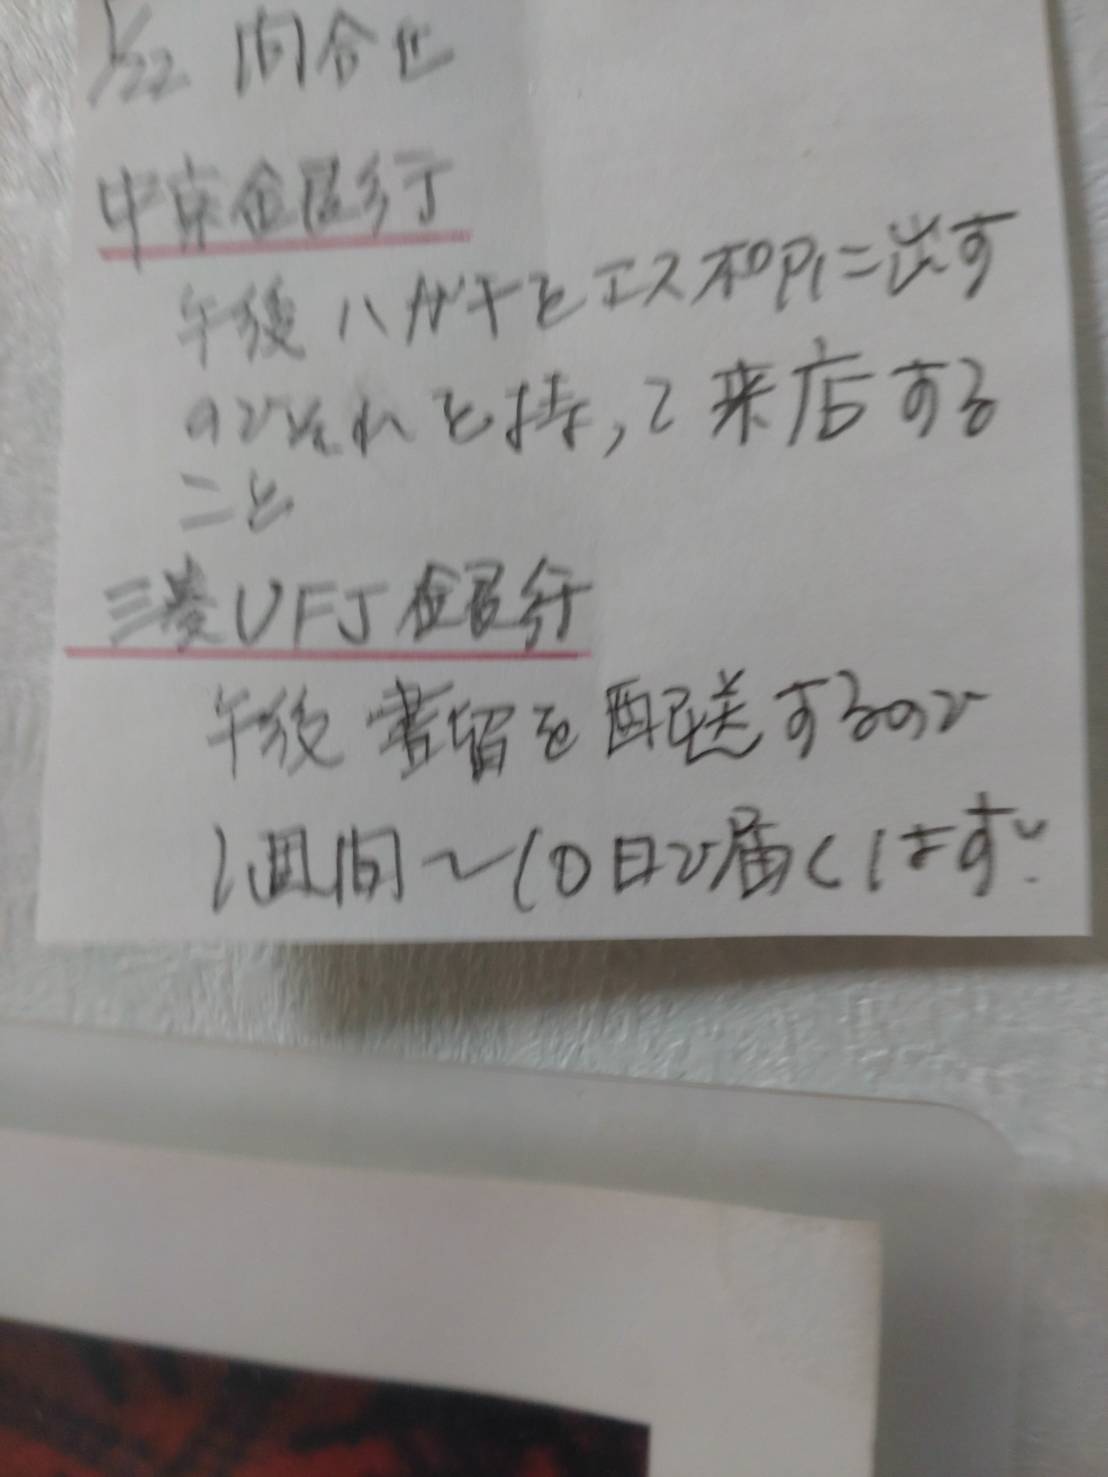 1/22 問合せ
中京銀行
午後 ハガキをエスポワに出す
のでそれを持って来店する
こと
三菱UFJ銀行
午後 書留を配送するので
1週間〜10日で届くします。